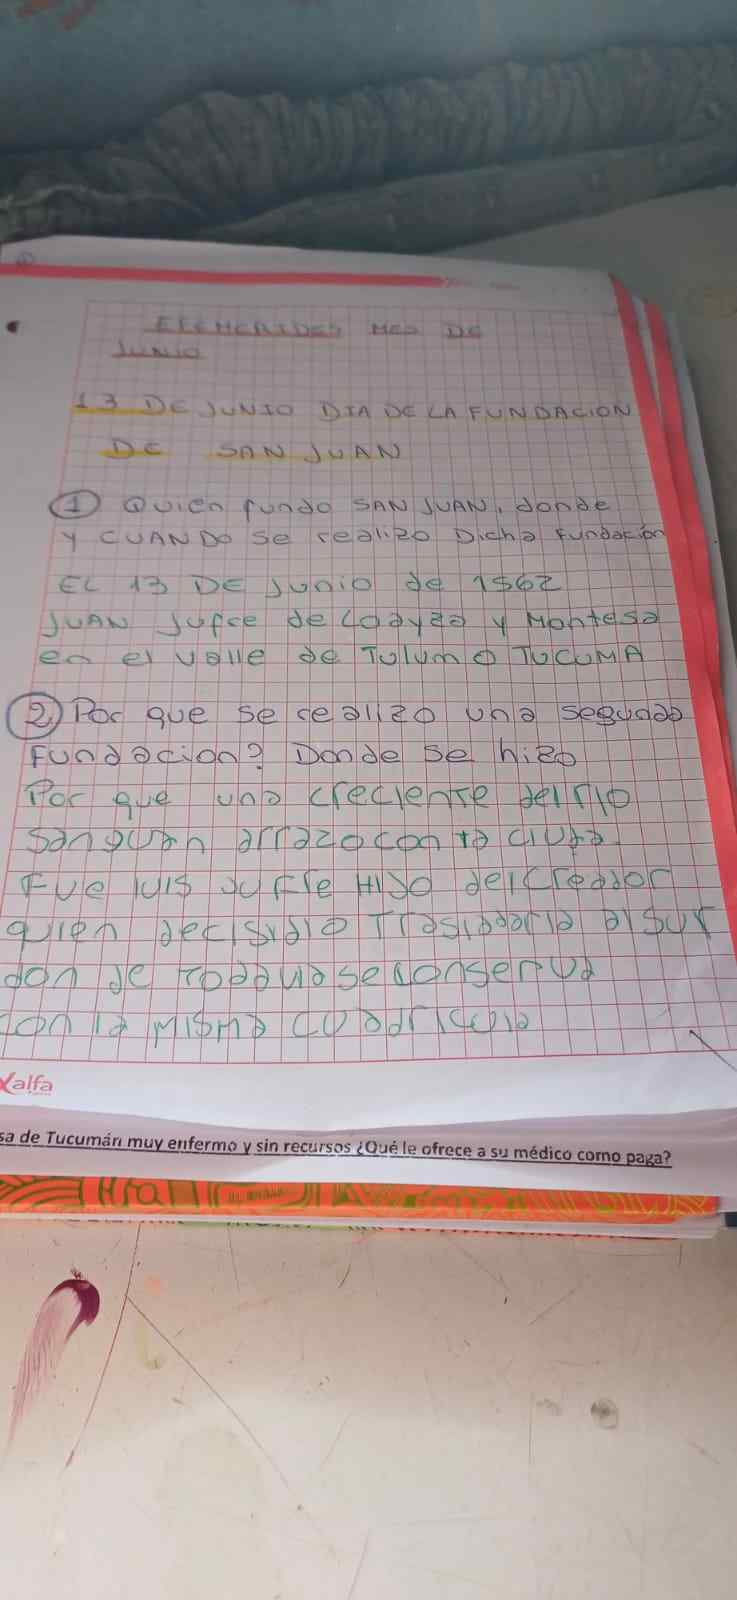 EFEMERIDES MES DE
JUNIO
13 DE JUNIO DIA DE LA FUNDACION
DE SAN JUAN
1 Quien fundo SAN JUAN, donde
Y CUANDO se realizo Dicha Fundación
EL 13 DE Junio de 1562
JUAN Jufre de Loayza y Montesa
en el valle de Tulum O TUCUMA
2 Por que se realizo una segunda
Fundacion? Donde se hizo
Por que una creciente del rio
San Juan arrazo con la ciuda
Fue luis Jufre HIJO del creador
quien decisidio Trasladarla al sur
don de Todavia se conserva
con la misma cuadricula
alfa
sa de Tucumán muy enfermo y sin recursos ¿Qué le ofrece a su médico como paga?